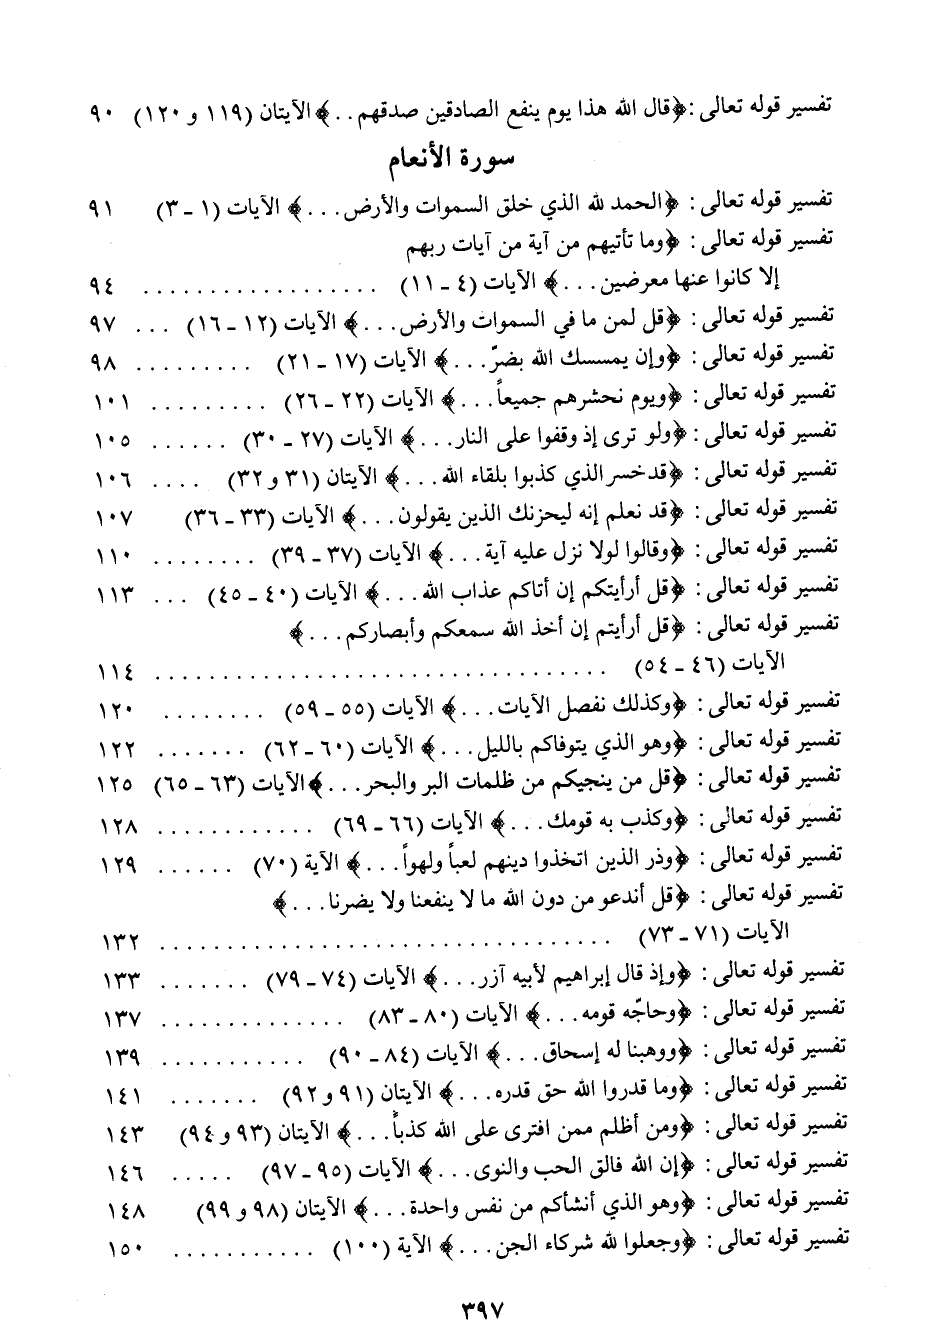 تفسير قوله تعالى : ﴿قال الله هذا يوم ينفع الصادقين صدقهم . . .﴾ الآيتان (١١٩ و ١٢٠) ٩٠
سورة الأنعام
تفسير قوله تعالى : ﴿الحمد لله الذي خلق السموات والأرض . . .﴾ الآيات (١ - ٣) ٩١
تفسير قوله تعالى : ﴿وما تأتيهم من آية من آيات ربهم
إلا كانوا عنها معرضين . . .﴾ الآيات (٤ - ١١) . . . . . . . . . . . . . . . . . . ٩٤
تفسير قوله تعالى : ﴿قل لمن ما في السموات والأرض . . .﴾ الآيات (١٢ - ١٦) . . . ٩٧
تفسير قوله تعالى : ﴿وإن يمسسك الله بضرّ . . .﴾ الآيات (١٧ - ٢١) . . . . . . . . . ٩٨
تفسير قوله تعالى : ﴿ويوم نحشرهم جميعاً . . .﴾ الآيات (٢٢ - ٢٦) . . . . . . . . . ١٠١
تفسير قوله تعالى : ﴿ولو ترى إذ وقفوا على النار . . .﴾ الآيات (٢٧ - ٣٠) . . . . . . ١٠٥
تفسير قوله تعالى : ﴿قد خسر الذي كذبوا بلقاء الله . . .﴾ الآيتان (٣١ و ٣٢) . . . . ١٠٦
تفسير قوله تعالى : ﴿قد نعلم إنه ليحزنك الذين يقولون . . .﴾ الآيات (٣٣ - ٣٦) ١٠٧
تفسير قوله تعالى : ﴿وقالوا لولا نزل عليه آية . . .﴾ الآيات (٣٧ - ٣٩) . . . . . . . . ١١٠
تفسير قوله تعالى : ﴿قل أرأيتكم إن أتاكم عذاب الله . . .﴾ الآيات (٤٠ - ٤٥) . . . ١١٣
تفسير قوله تعالى : ﴿قل أرأيتم إن أخذ الله سمعكم وأبصاركم . . .﴾
الآيات (٤٦ - ٥٤) . . . . . . . . . . . . . . . . . . . . . . . . . . . . . . . . . . ١١٤
تفسير قوله تعالى : ﴿وكذلك نفصل الآيات . . .﴾ الآيات (٥٥ - ٥٩) . . . . . . . . ١٢٠
تفسير قوله تعالى : ﴿وهو الذي يتوفاكم بالليل . . .﴾ الآيات (٦٠ - ٦٢) . . . . . . . ١٢٢
تفسير قوله تعالى : ﴿قل من ينجيكم من ظلمات البر والبحر . . .﴾ الآيات (٦٣ - ٦٥) ١٢٥
تفسير قوله تعالى : ﴿وكذب به قومك . . .﴾ الآيات (٦٦ - ٦٩) . . . . . . . . . . . . ١٢٨
تفسير قوله تعالى : ﴿وذر الذين اتخذوا دينهم لعباً ولهواً . . .﴾ الآية (٧٠) . . . . . . ١٢٩
تفسير قوله تعالى : ﴿قل أندعو من دون الله ما لا ينفعنا ولا يضرنا . . .﴾
الآيات (٧١ - ٧٣) . . . . . . . . . . . . . . . . . . . . . . . . . . . . . . . . . . ١٣٢
تفسير قوله تعالى : ﴿وإذ قال إبراهيم لأبيه آزر . . .﴾ الآيات (٧٤ - ٧٩) . . . . . . . ١٣٣
تفسير قوله تعالى : ﴿وحاجّه قومه . . .﴾ الآيات (٨٠ - ٨٣) . . . . . . . . . . . . . . ١٣٧
تفسير قوله تعالى : ﴿ووهبنا له إسحاق . . .﴾ الآيات (٨٤ - ٩٠) . . . . . . . . . . . ١٣٩
تفسير قوله تعالى : ﴿وما قدروا الله حق قدره . . .﴾ الآيتان (٩١ و ٩٢) . . . . . . . ١٤١
تفسير قوله تعالى : ﴿ومن أظلم ممن افترى على الله كذباً . . .﴾ الآيتان (٩٣ و ٩٤) ١٤٣
تفسير قوله تعالى : ﴿إن الله فالق الحب والنوى . . .﴾ الآيات (٩٥ - ٩٧) . . . . . ١٤٦
تفسير قوله تعالى : ﴿وهو الذي أنشأكم من نفس واحدة . . .﴾ الآيتان (٩٨ و ٩٩) ١٤٨
تفسير قوله تعالى : ﴿وجعلوا لله شركاء الجن . . .﴾ الآية (١٠٠) . . . . . . . . . . . ١٥٠
٣٩٧